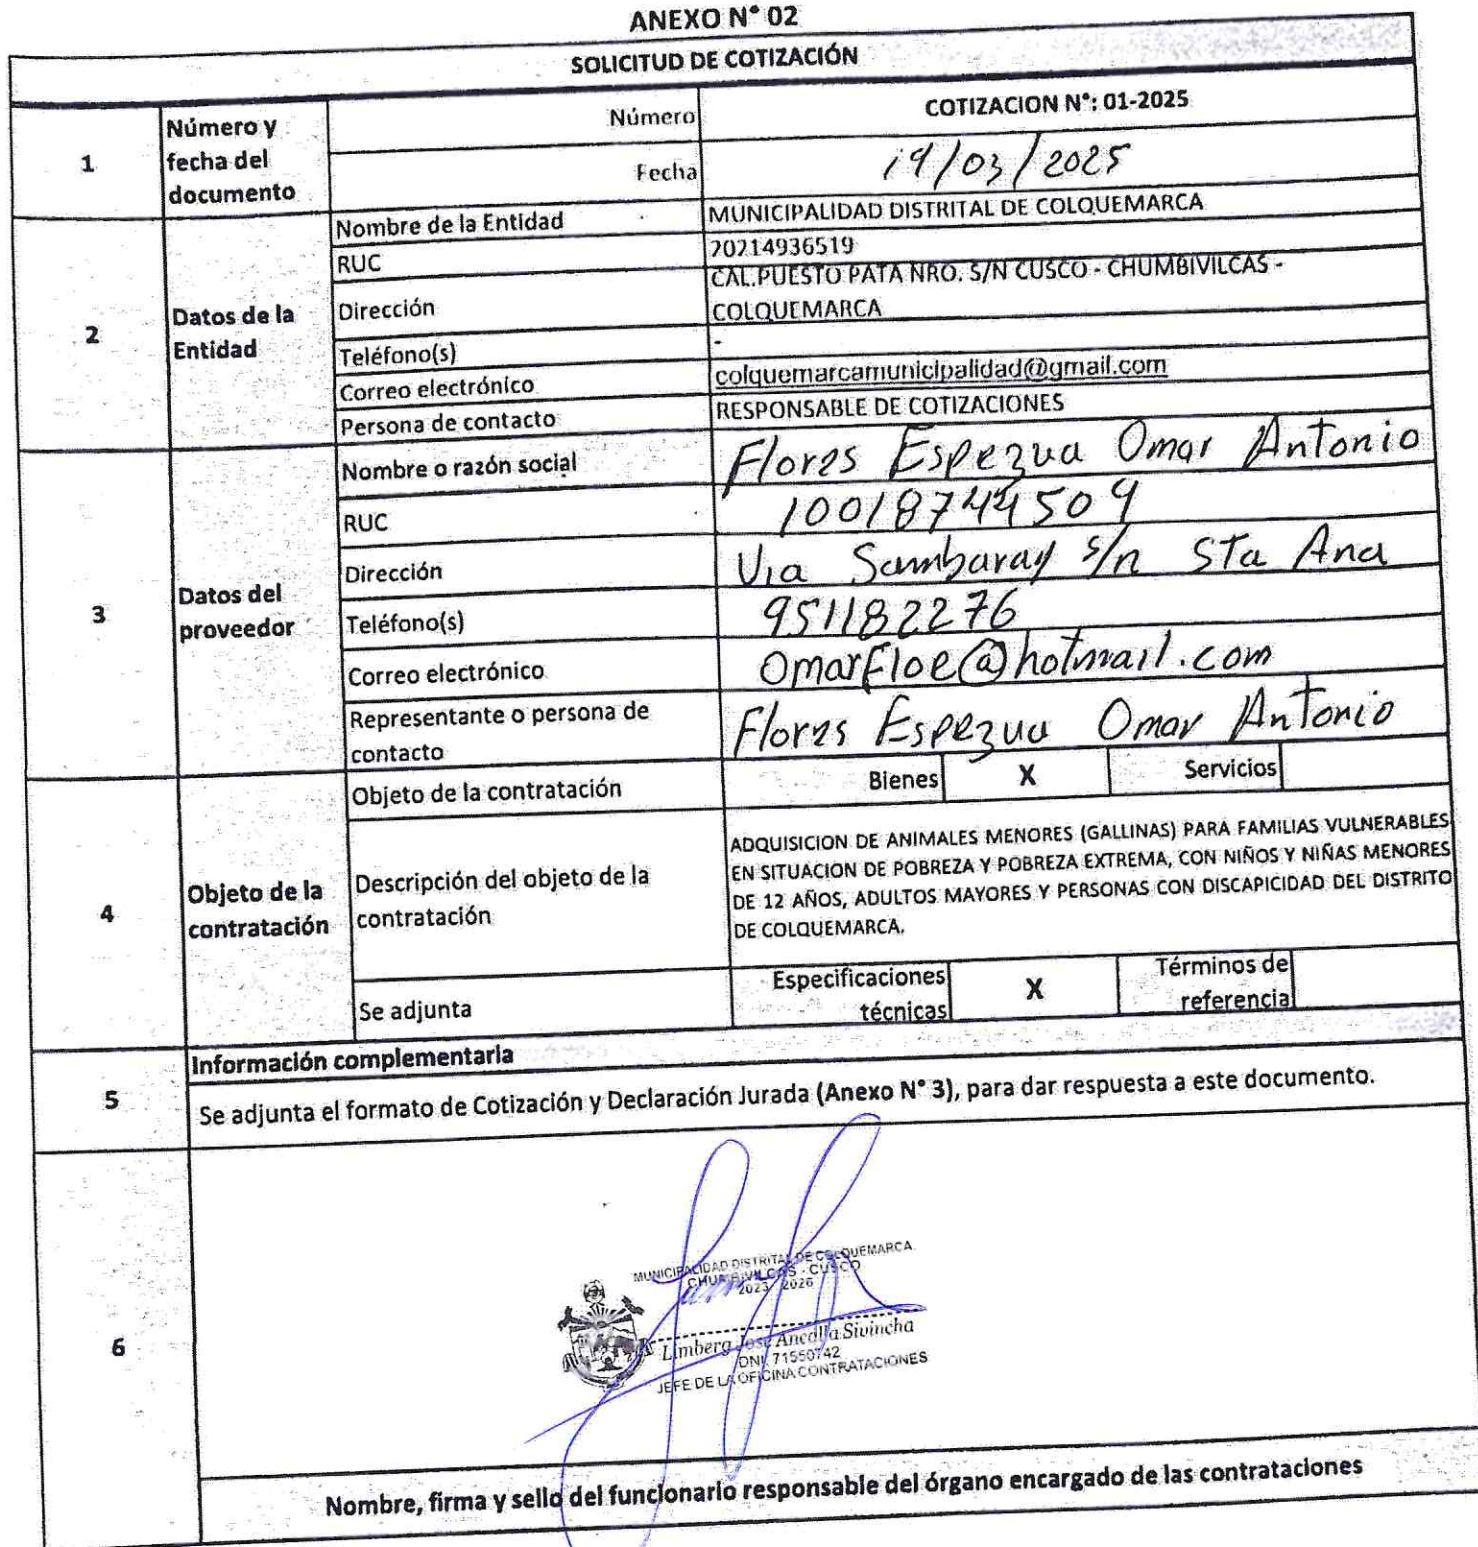 ANEXO N° 02
SOLICITUD DE COTIZACIÓN
1
Número y
fecha del
documento
Número
COTIZACION N°: 01-2025
Fecha
19/03/2025
2
Datos de la
Entidad
Nombre de la Entidad
MUNICIPALIDAD DISTRITAL DE COLQUEMARCA
RUC
20214936519
Dirección
CAL.PUESTO PATA NRO. S/N CUSCO - CHUMBIVILCAS -
COLQUEMARCA
Teléfono(s)
-
Correo electrónico
colquemarcamunicipalidad@gmail.com
Persona de contacto
RESPONSABLE DE COTIZACIONES
3
Datos del
proveedor
Nombre o razón social
Flores Espezua Omar Antonio
RUC
10018744509
Dirección
Via Sambaray s/n Sta Ana
Teléfono(s)
951182276
Correo electrónico
OmarFloe@hotmail.com
Representante o persona de
contacto
Flores Espezua Omar Antonio
4
Objeto de la
contratación
Objeto de la contratación
Bienes X Servicios
Descripción del objeto de la
contratación
ADQUISICION DE ANIMALES MENORES (GALLINAS) PARA FAMILIAS VULNERABLES
EN SITUACION DE POBREZA Y POBREZA EXTREMA, CON NIÑOS Y NIÑAS MENORES
DE 12 AÑOS, ADULTOS MAYORES Y PERSONAS CON DISCAPICIDAD DEL DISTRITO
DE COLQUEMARCA.
Se adjunta
Especificaciones
técnicas
X
Términos de
referencia
5
Información complementaria
Se adjunta el formato de Cotización y Declaración Jurada (Anexo N° 3), para dar respuesta a este documento.
6
MUNICIPALIDAD DISTRITAL DE COLQUEMARCA
CHUMBIVILCAS - CUSCO
2023 2026
Limberg Jose Ancalla Sivincha
DNI. 71550742
JEFE DE LA OFICINA CONTRATACIONES
Nombre, firma y sello del funcionario responsable del órgano encargado de las contrataciones